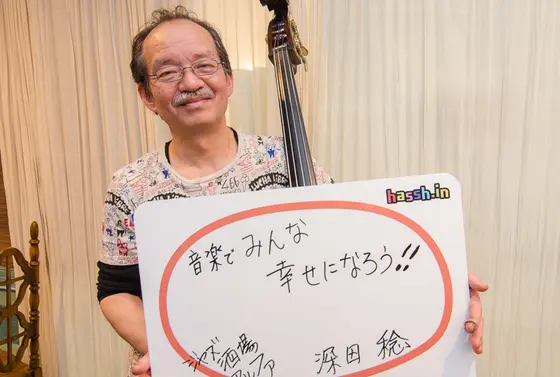 hassh.in
音楽でみんな
幸せになろう!!
ジャズ酒場
深田 稔